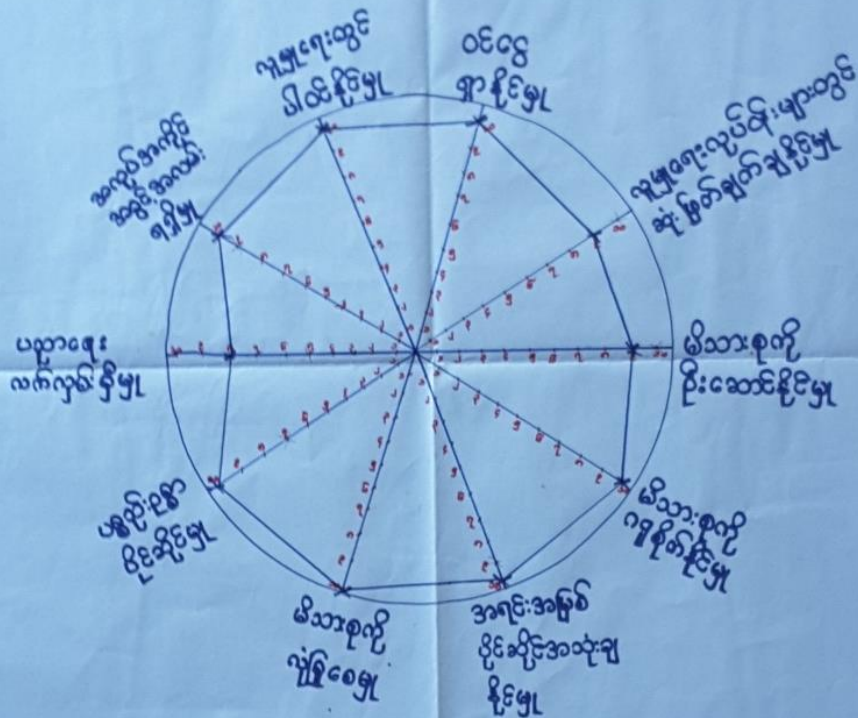 လူမှုရေးတွင်
ပါဝင်နိုင်မှု
ဝင်ငွေ
ရှာနိုင်မှု
လူမှုရေးလုပ်ငန်းများတွင်
ဆုံးဖြတ်ချက်ချနိုင်မှု
မိသားစုကို
ဦးဆောင်နိုင်မှု
မိသားစုကို
ဂရုစိုက်နိုင်မှု
အရင်းအမြစ်
ပိုင်ဆိုင်အသုံးချ
နိုင်မှု
မိသားစုကို
လုံခြုံစေမှု
ပစ္စည်းဥစ္စာ
ပိုင်ဆိုင်မှု
ပညာရေး
လက်လှမ်းမှီမှု
အလုပ်အကိုင်
အခွင့်အလမ်း
ရရှိမှု